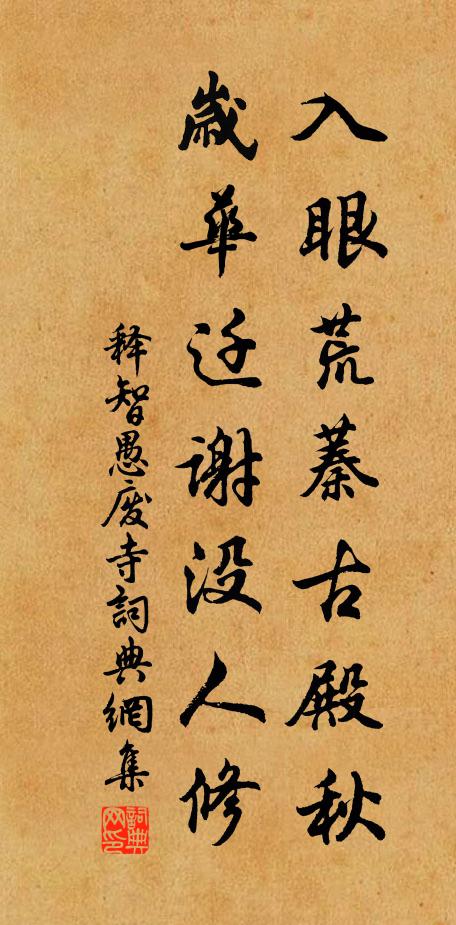 入眼荒蓁古殿秋
歲華迁謝没人修
释智愚廢寺詞典網集
詞典网印